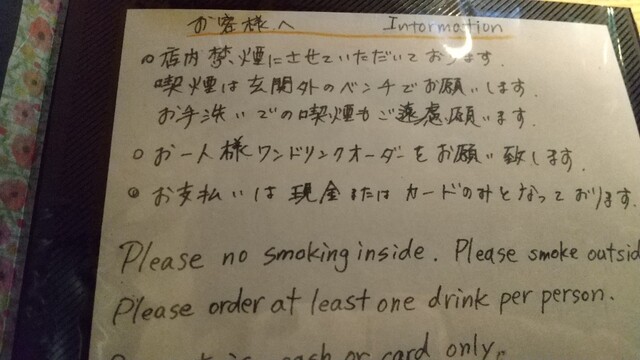 お客様へ Information
○店内禁煙にさせていただいております.
喫煙は玄関外のベンチでお願いします.
お手洗いでの喫煙もご遠慮願います.
○お一人様ワンドリンクオーダーをお願い致します.
◎お支払いは現金またはカードのみとなっております.
Please no smoking inside. Please smoke outsid
Please order at least one drink per person.
cash or card only.